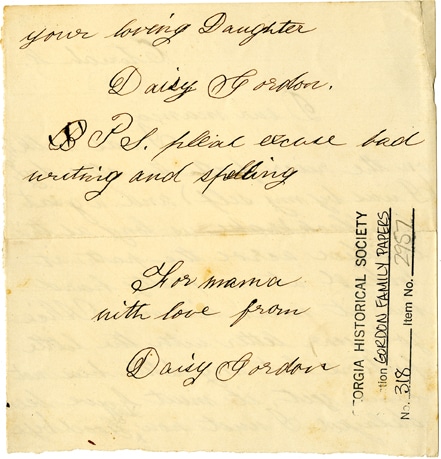 your loving Daughter
Daisy Gordon.
P S. pleas excuse bad
writing and spelling
For mama
with love from
Daisy Gordon
EORGIA HISTORICAL SOCIETY
tion GORDON FAMILY PAPERS
No. 318 Item No. 2957